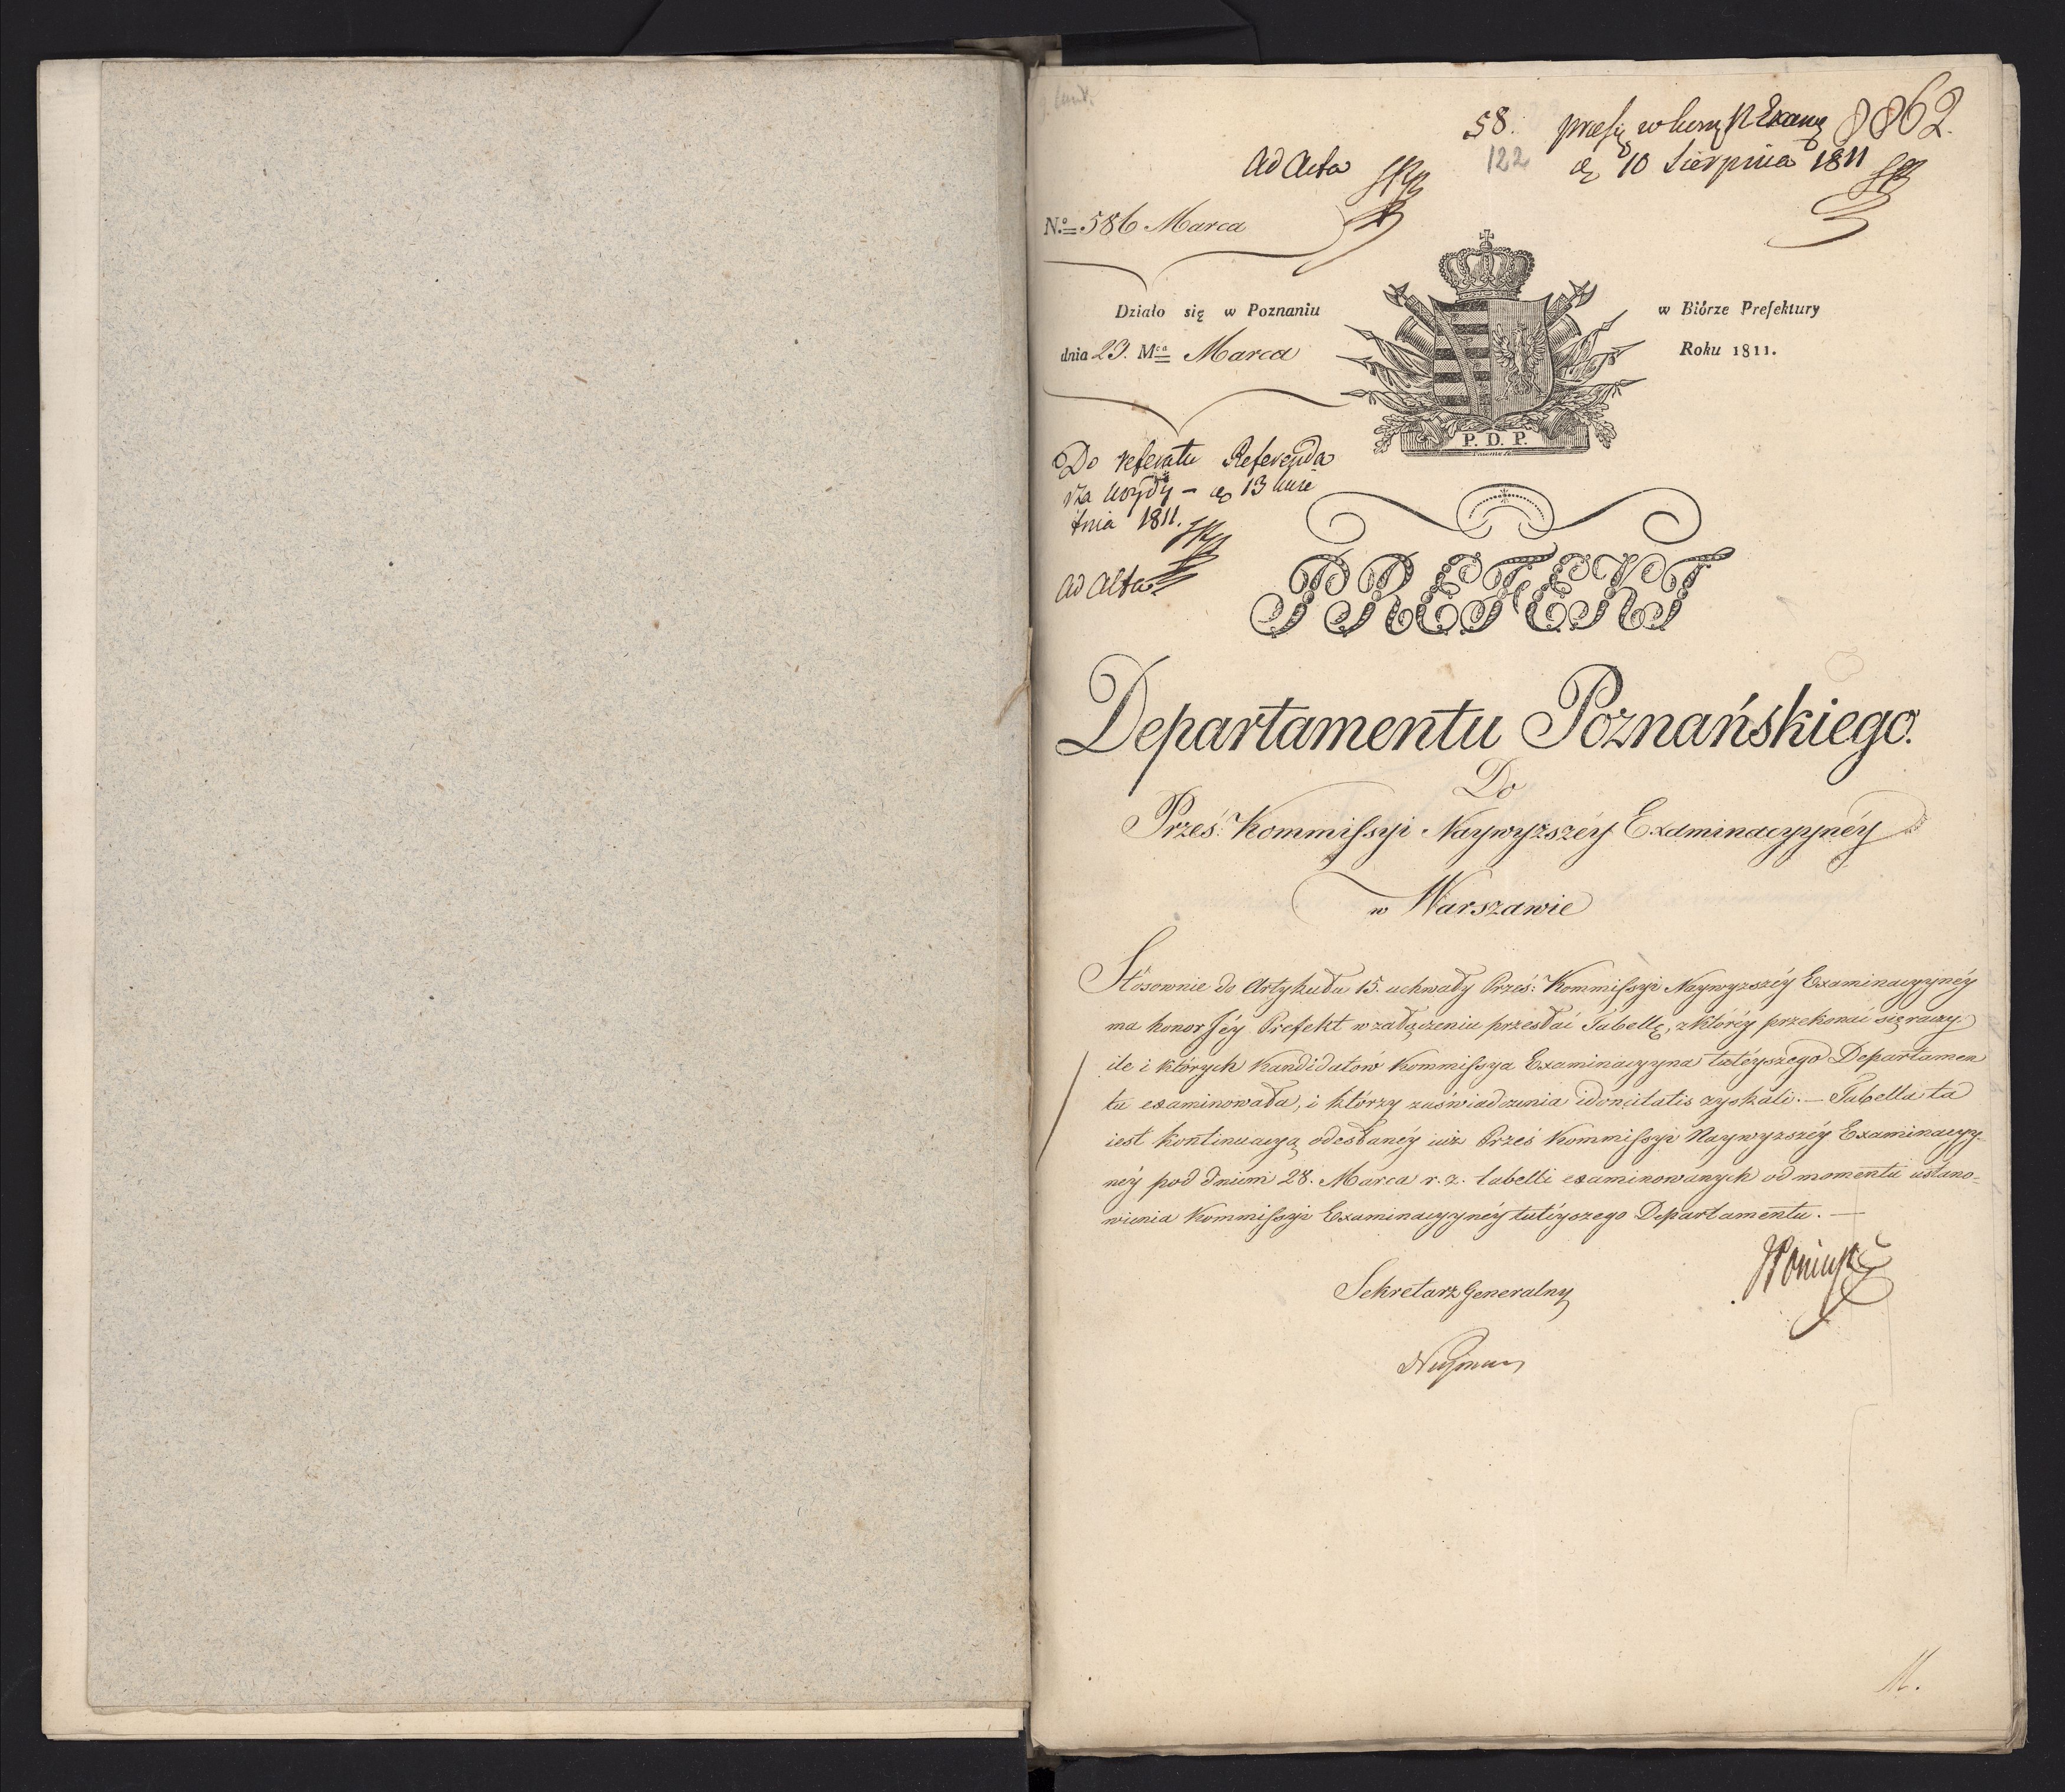 58. 8862.
122
Ad Acta
d 10 Sierpnia 1811
No. 586 Marca
Działo się w Poznaniu w Biórze Prefektury
dnia 23. Mca Marca Roku 1811.
P. D. P.
Do referatu Referenda
rza
1811.
ad Acta
PREFEKT
Departamentu Poznańskiego.
Do
Prześ: Kommissyi Naywyższéy Examinacyynéy
w Warszawie
Stósownie do Artykułu 15. uchwały Prześ: Kommissyi Naywyższéy Examinacyynéy
ma honor Jéy Prefekt w załączeniu przesłać Tabellę, z któréy przekonać się raczy.
ile i których Kandidatów Kommissya Examinacyyna tutéyszego Departamen
tu examinowała, i którzy zaświadczenia idoneitatis zyskali. — Tabella ta
iest kontinuacyą odesłanéy iuż Prześ Kommissyi Naywyższéy Examinacyy-
néy pod dniem 28. Marca r. z. tabelli examinowanych od momentu ustano=
wienia Kommissyi Examinacyynéy tutéyszego Departamentu. —
Sekretarz Generalny
M.